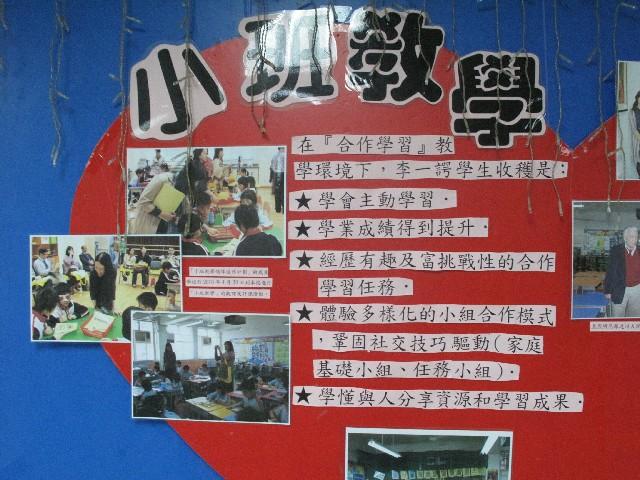 小班教學
在『合作學習』教
學環境下，李一諤學生收穫是：
★學會主動學習．
★學業成績得到提升．
★經歷有趣及富挑戰性的合作
學習任務．
★體驗多樣化的小組合作模式
，鞏固社交技巧驅動(家庭
基礎小組、任務小組)．
★學懂與人分享資源和學習成果．